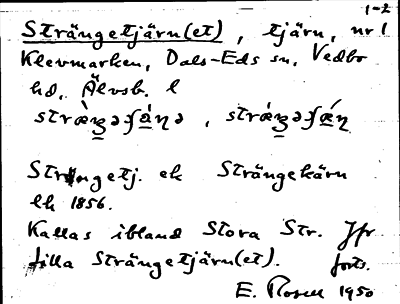 1-2
Strängetjärn(et), tjärn, nr 1
Klevmarken, Dals-Eds sn, Vedbo
hd, Älvsb. l
Strängetj. ek Strängekärn
lk 1856.
Kallas ibland Stora Str. Jfr
Lilla Strängetjärn(et). forts.
E. Rosell 1950